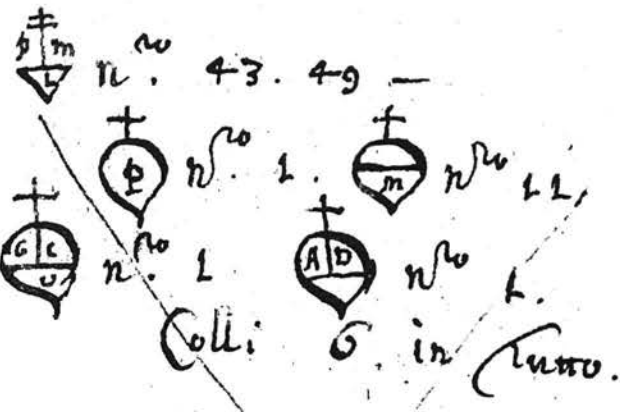 p m L nro. 43. 49 —
P nro. 1. m nro 11.
G C U nro. 1 A D nro 1.
Colli 6. in Tutto.